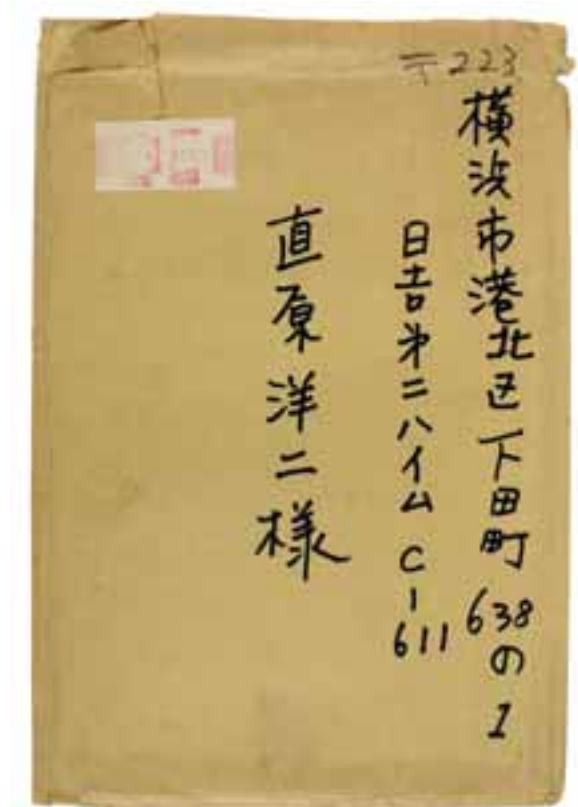 〒223
横浜市港北区下田町638の1
日吉第二ハイムC-611
直原洋二様